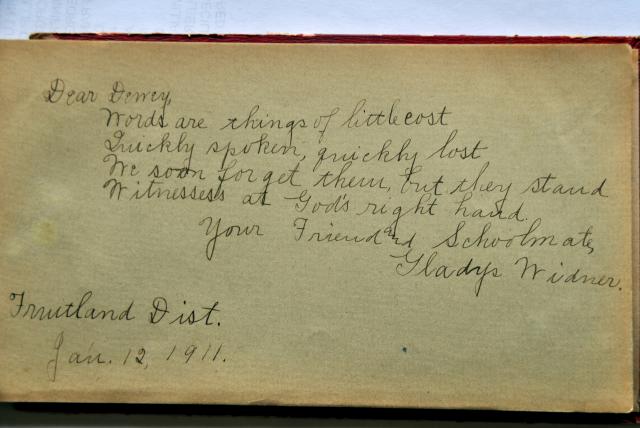 Dear Dewey,
Words are things of little cost
Quickly spoken, quickly lost
We soon forget them, but they stand
Witnessess at God's right hand.
Your Friend and Schoolmate,
Gladys Widner.
Fruitland Dist.
Jan. 12, 1911.